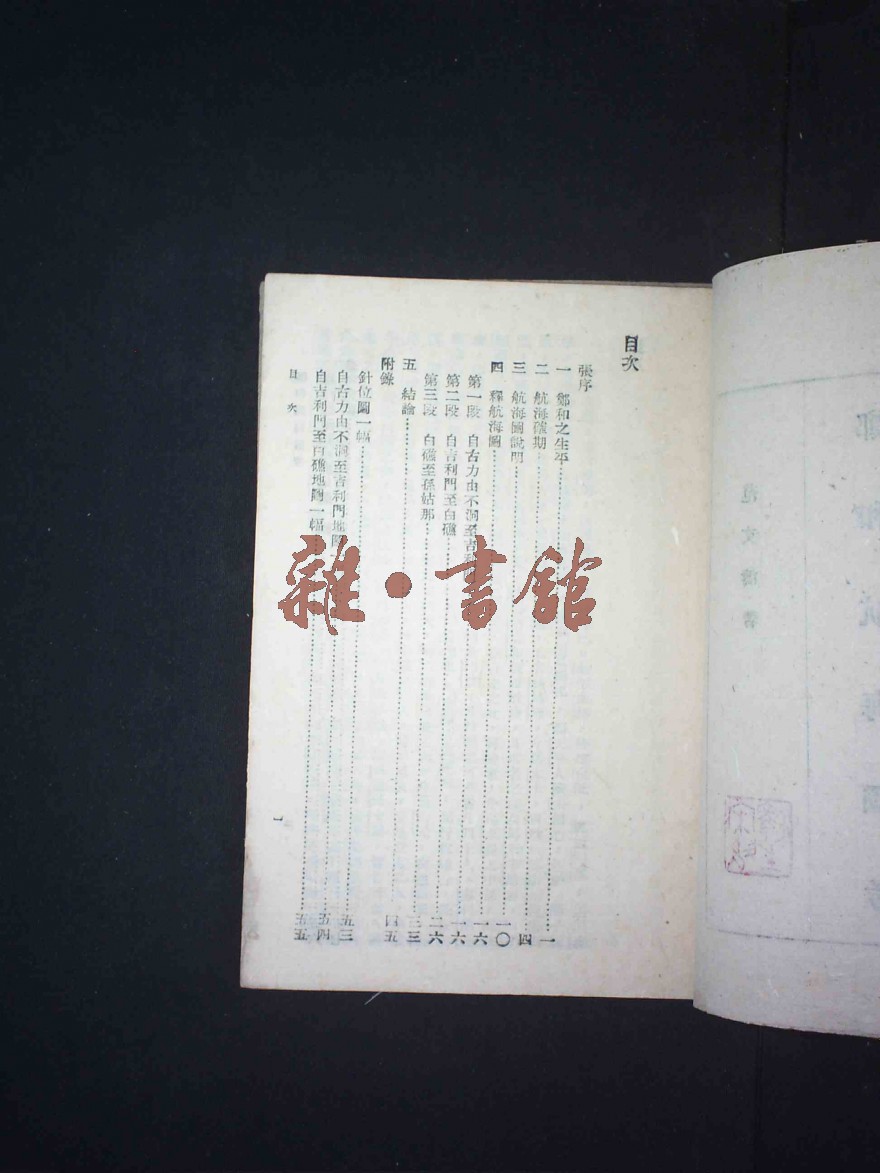 鄭和航海圖考
范文濤著
目次
張序
一 鄭和之生平……一
二 航海確期……四
三 航海圖說明……一〇
四 釋航海圖……一六
第一段 自古力由不洞至吉利……一六
第二段 自吉利門至白礁……二六
第三段 白礁至孫姑那……三三
五 結論……四五
附錄
針位圖一幅……五三
自古力由不洞至吉利門地圖……五四
自吉利門至白礁地圖一幅……五五
目次
一
雜·書館